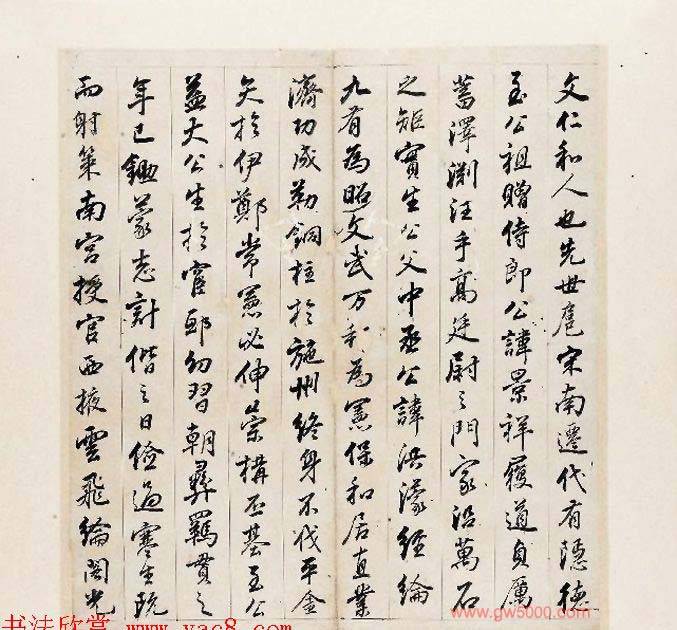 文仁和人也先世扈宋南遷代有隱德
至公祖贈侍郎公諱景祥履道貞厲
蓄澤淵汪乎高廷尉之門家沿萬石
之矩實生公父中丞公諱洪濛經綸
九有為昭文武万和為憲保和居直業
濟功成勒銅柱於施州終身不伐平金
矢於伊鄭常憲必伸崇構丕基至公
益大公生於宦邸幼習朝彝羈貫之
年已鋤蒙志計偕之日儉過寒生玩
而射策南宮授官西掖雲飛綸閣光
书法欣赏 www.yac8.com
www.gw5000.com